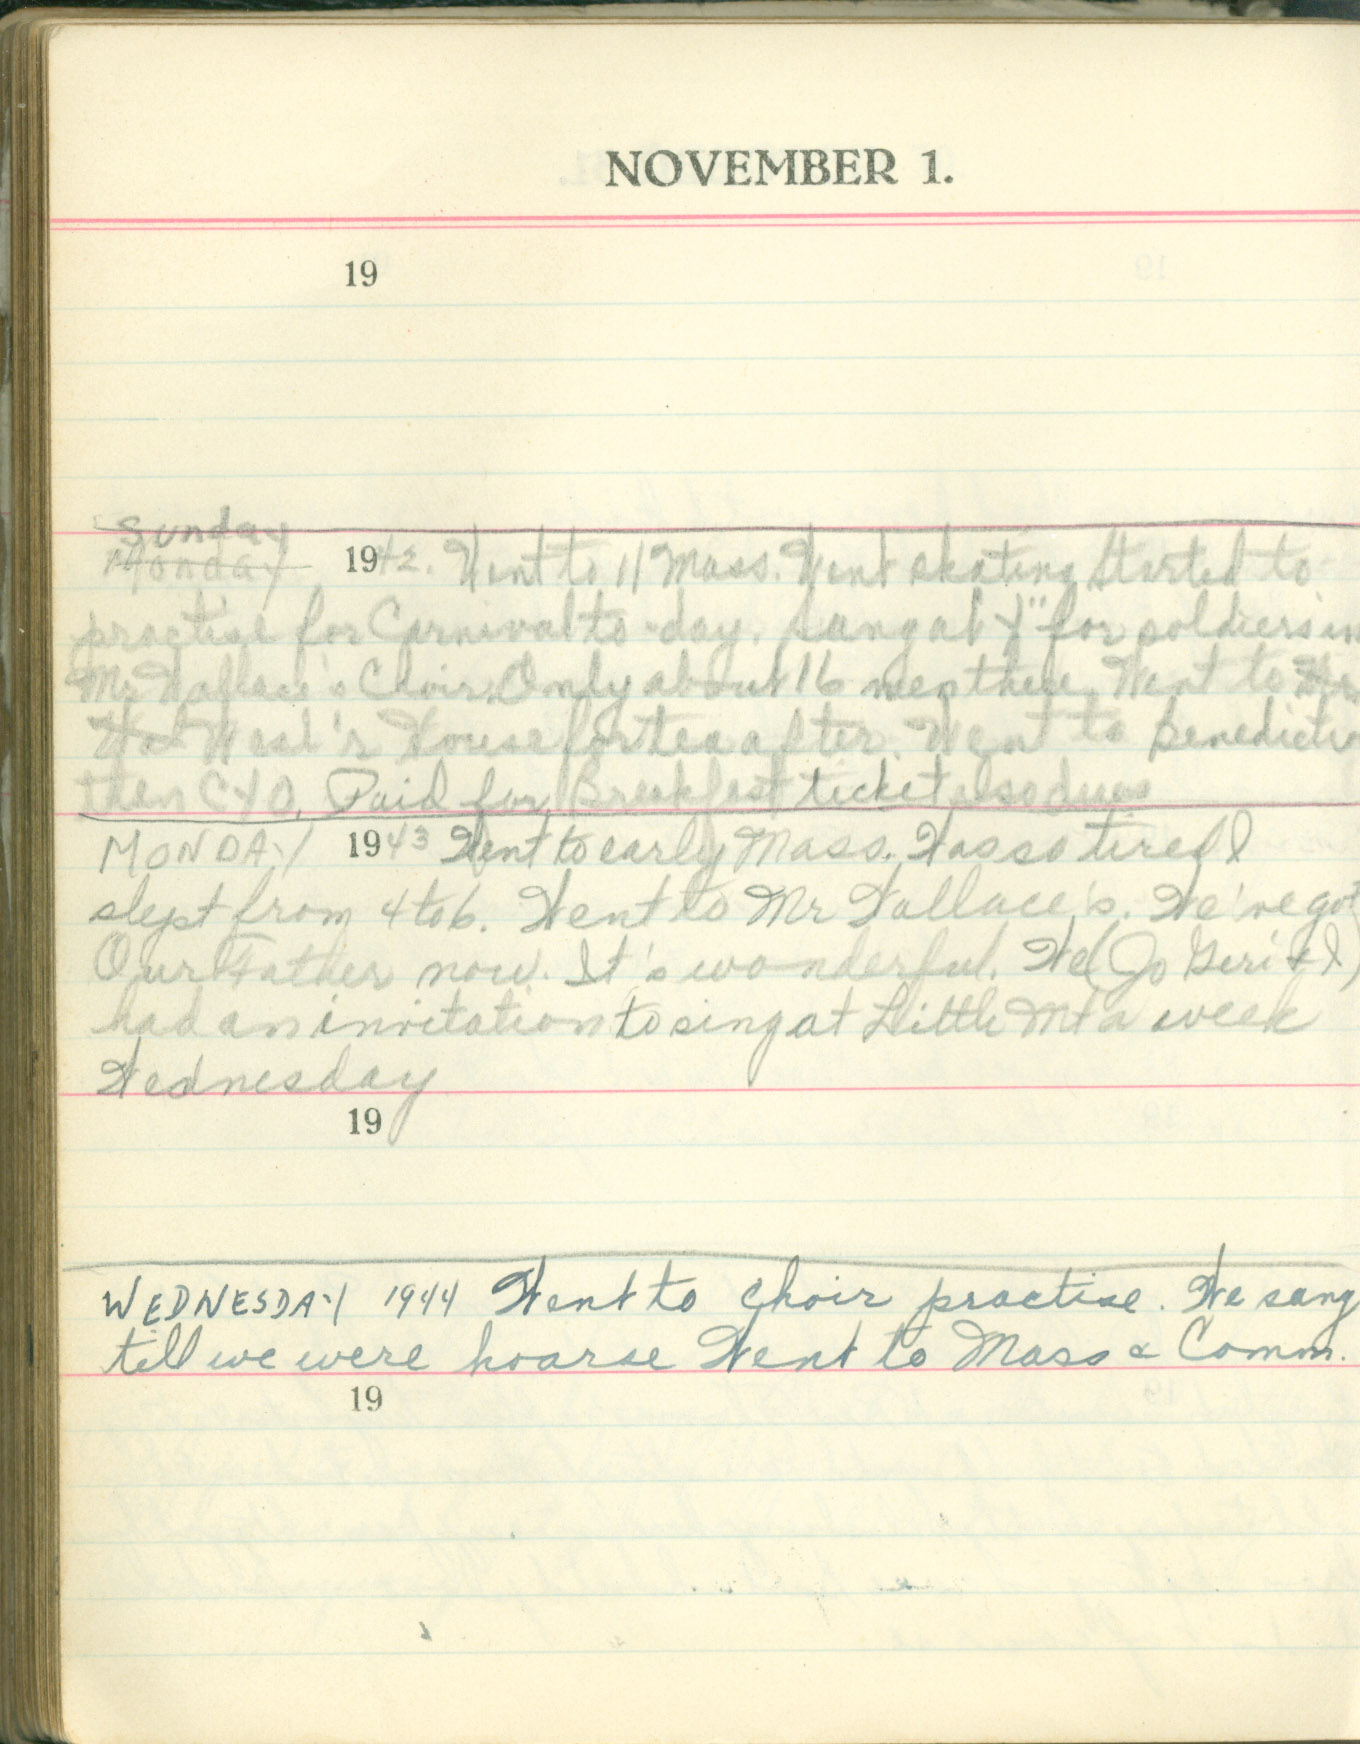 NOVEMBER 1.
19
Sunday
Monday 1942. Went to 11 Mass. Went skating Started to
practise for Carnival to-day. Sang at "Y" for soldiers in
Mr Wallace's Choir. Only about 16 men there. Went to
West's House for tea after. Went to Benediction
then CYO. Paid for Breakfast ticket also dues
MONDAY 1943 Went to early Mass. Was so tired I
slept from 4 to 6. Went to Mr Wallace's. We've got
Our Father now. It's wonderful. We (Jo Geri & I)
had an invitation to sing at Little Mt a week
Wednesday
19
WEDNESDAY 1944 Went to choir practise. We sang
till we were hoarse Went to Mass & Comm.
19